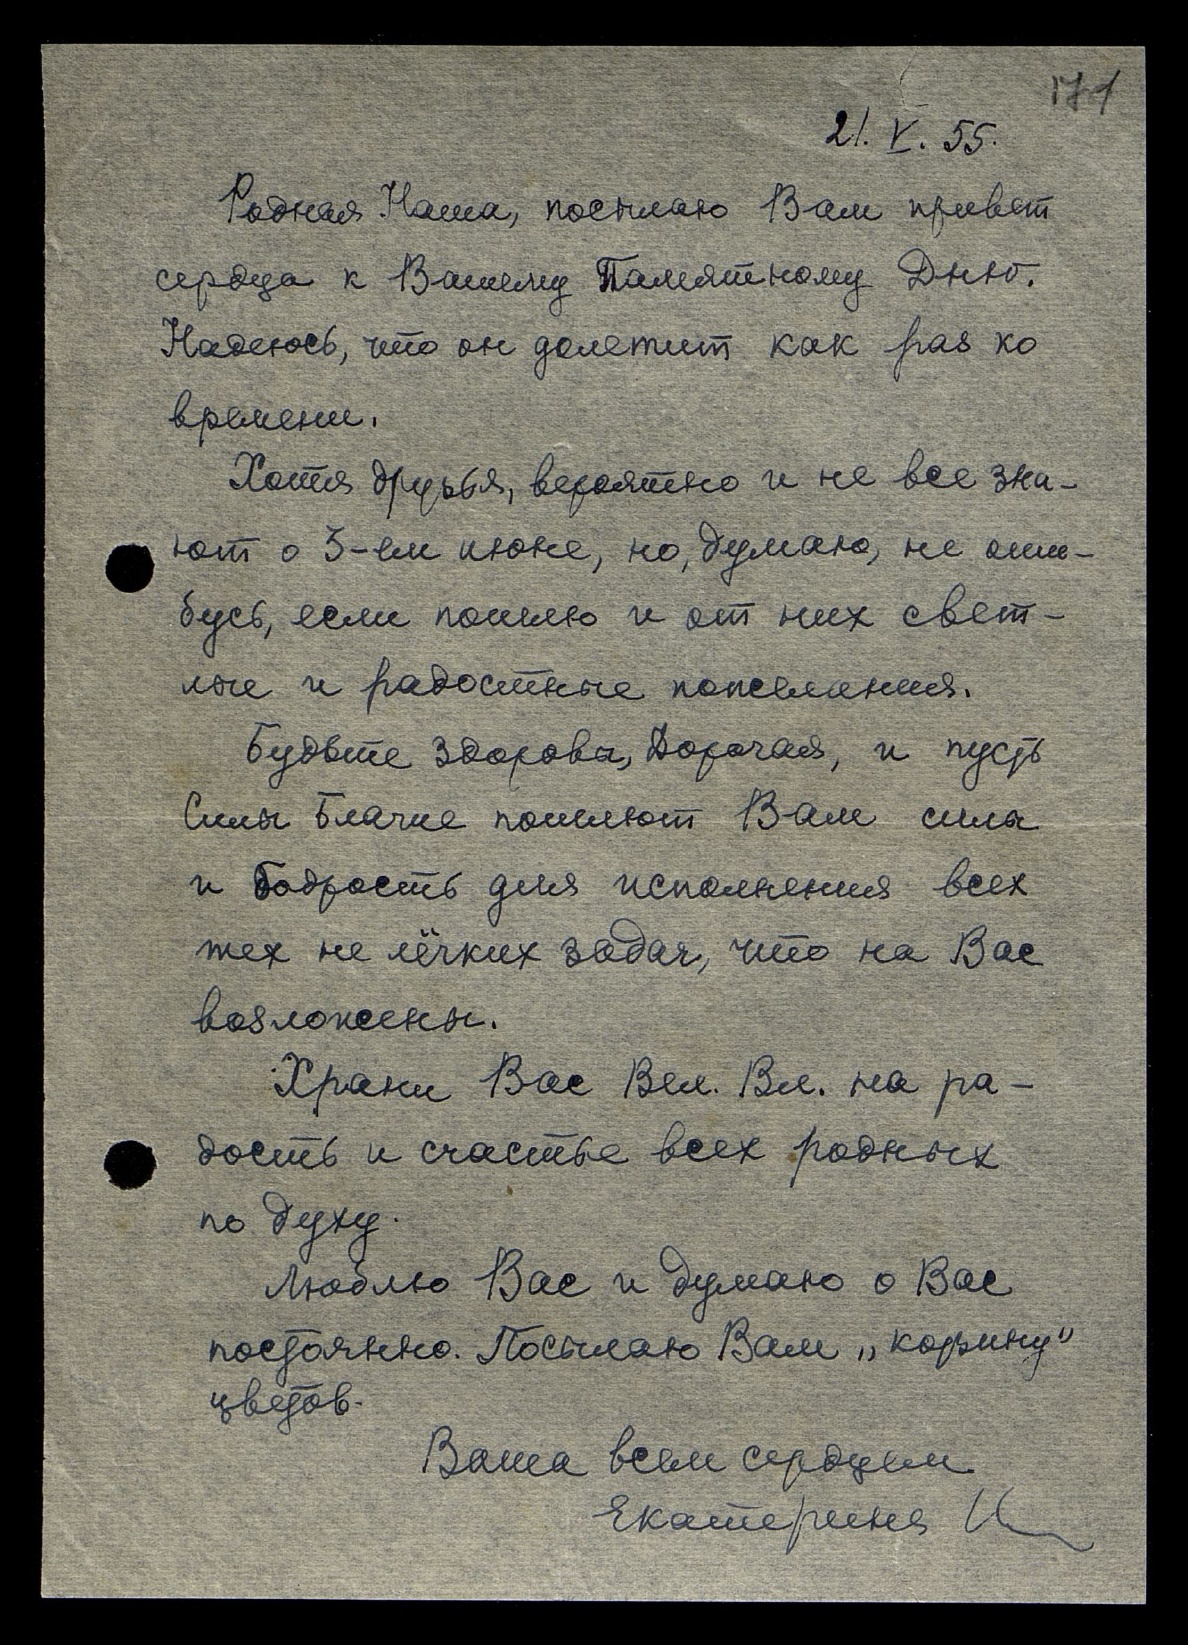 171
21. V. 55.
Родная Наша, посылаю Вам привет
сердца к Вашему Памятному Дню.
Надеюсь, что он долетит как раз ко
времени.
Хотя друзья, вероятно и не все зна-
ют о 3-ем июне, но, думаю, не оши-
бусь, если пошлю и от них свет-
лые и радостные пожелания.
Будьте здоровы, Дорогая, и пусть
Силы Благие пошлют Вам силы
и бодрость для исполнения всех
тех не лёгких задач, что на Вас
возложены.
Храни Вас Вел. Вл. на ра-
дость и счастье всех родных
по духу.
Люблю Вас и думаю о Вас
постоянно. Посылаю Вам „корзину"
цветов.
Ваша всем сердцем
Екатерина